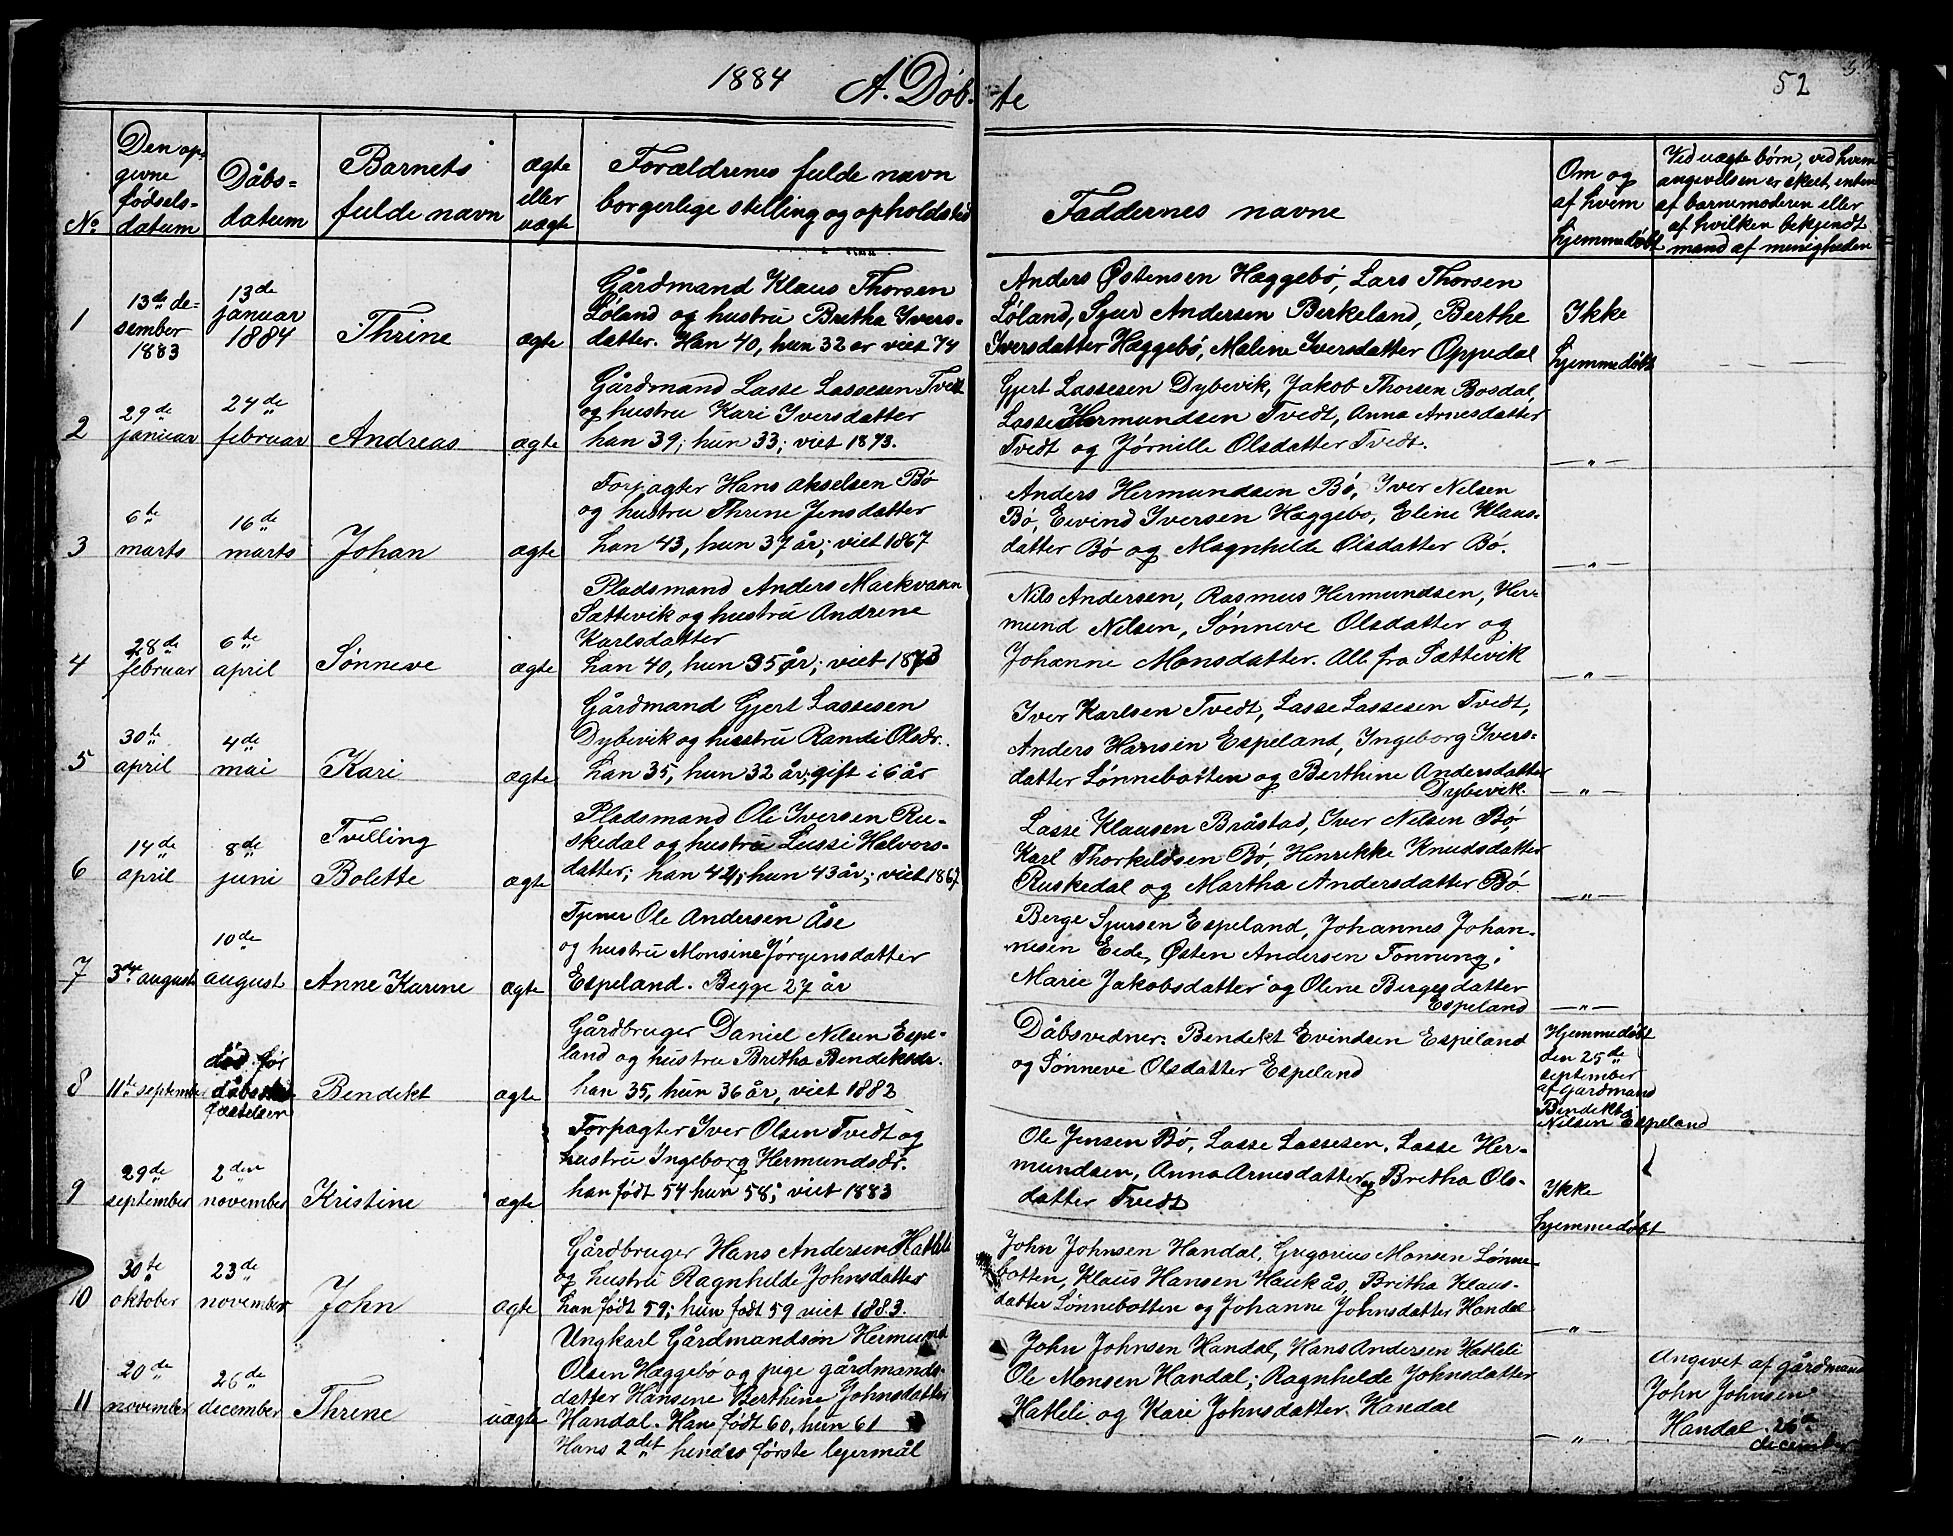 1884 A. Døb-te 52
No.
Den op-
givne
fødsels-
datum
Dåbs-
datum
Barnets
fulde navn
ægte
eller
uægte
Forældrenes fulde navn
borgerlige stilling og opholdsted
Faddernes navne
Om og
af hvem
hjemmedøbt
Ved uægte børn, ved hvem
angivelsen er skeet, enten
af barnemoderen eller
af hvilken bekjendt
mand af menigheden
1
13de de-
sember
1883
13de
januar
1884
Thrine
ægte
Gårdmand Klaus Thorsen
Løland og hustru Bretha Ivers-
datter. Han 40, hun 32 år viet 74
Anders Østensen Hæggebø, Lars Thorsen
Løland, Sjur Andersen Berkeland, Berthe
Iversdatter Hæggebø, Maline Iversdatter Oppedal
Ikke
hjemmedøbt
2
29de
januar
24de
februar
Andreas
ægte
Gårdmand Lasse Lassesen Tvedt
og hustru Kari Iversdatter
han 39; hun 33; viet 1873.
Gjert Lassesen Dybevik, Jakob Thorsen Bosdal,
Lasse Hermundsen Tvedt, Anna Arnesdatter
Tvedt og Jørnille Olsdatter Tvedt.
— „ —
3
6te
marts
16de
marts
Johan
ægte
Forpagter Hans Akselsen Bø
og hustru Thrine Jensdatter
han 43, hun 37 år; viet 1867
Anders Hermundsen Bø, Iver Nilsen
Bø, Eivind Iversen Hæggebø, Eline Klaus-
datter Bø og Magnhilde Olsdatter Bø.
— „ —
4
28de
februar
6te
april
Sønneve
ægte
Pladsmand Anders Markvasen
Sættevik og hustru Andrene
Karlsdatter
han 40, hun 35 år; viet 1873
Nils Andersen, Rasmus Hermundsen, Her-
mund Nilsen, Sønneve Olsdatter og
Johanne Monsdatter. Alle fra Sættevik
— „ —
5
30te
april
4de
mai
Kari
ægte
Gårdmand Gjert Lassesen
Dybevik og hustru Randi Olsdr.
han 35, hun 32 år, gift i 6 år
Iver Karlsen Tvedt, Lasse Lassesen Tvedt,
Anders Hansen Espeland, Ingeborg Ivers-
datter Sønnebotten og Berthine Andersdatter
Dybevik.
— „ —
6
14de
april
8de
juni
Tvilling
Bolette
ægte
Pladsmand Ole Iversen Ru-
skedal og hustru Lussi Halvors-
datter; han 42, hun 43 år; viet 1867
Lasse Klausen Bråstad, Iver Nelsen Bø,
Karl Thorkildsen Bø, Henrikke Knudsdatter
Ruskedal og Martha Andersdatter Bø
— „ —
7
3die august
10de
august
Anne Karine
ægte
Tjener Ole Andersen Åse
og hustru Monsine Jørgensdatter
Espeland. Begge 27 år
Berge Sjursen Espeland, Johannes Johan-
nesen Eide, Østen Andersen Tonning;
Marie Jakobsdatter og Oline Bergesdatter
Espeland
— „ —
8
11te september
død før
fæstelsen
Bendikt
ægte
Gårdbruger Daniel Nilsen Espe-
land og hustru Bretha Bendiktsdr.
han 35, hun 36 år, viet 1882
Dåbsvidner: Bendikt Evindsen Espeland
og Sønneve Olsdatter Espeland
Hjemmedøbt
den 25de
september
af Gårdmand
Bendikt
Nilsen Espeland
9
29de
september
2den
november
Kristine
ægte
Forpagter Iver Olsen Tvedt og
hustru Ingeborg Hermundsdr.
han født 54 hun 58; viet 1883
Ole Jensen Bø, Lasse Lassesen, Lasse Her-
mundsen, Anna Arnesdatter og Bretha Ols-
datter Tvedt
Ikke
hjemmedøbt
10
30te
oktober
23de
november
John
ægte
Gårdbruger Hans Andersen Hatleli
og hustru Ragnhilde Johnsdatter
han født 59; hun født 59 viet 1883.
John Johnsen Handal, Gregorius Monsen Sønne-
botten, Klaus Hansen Haukås, Britha Klaus-
datter Sønnebotten og Johanne Johnsdatter Handal
— „ —
11
20de
november
26de
december
Thrine
uægte
Ungkarl Gårdmandsøn Hermund
Olsen Hæggebø og pige gårdmands-
datter Hansene Berthine Johnsdatter
Handal. Han født 60, hun 61
Hans 2det hendes første lejermål
John Johnsen Handal, Hans Andersen Hatleli
Ole Monsen Handal; Ragnhilde Johnsdatter
Hatleli og Kari Johnsdatter Handal
— „ —
Angivet af gårdmand
John Johnsen
Handal 26de
december